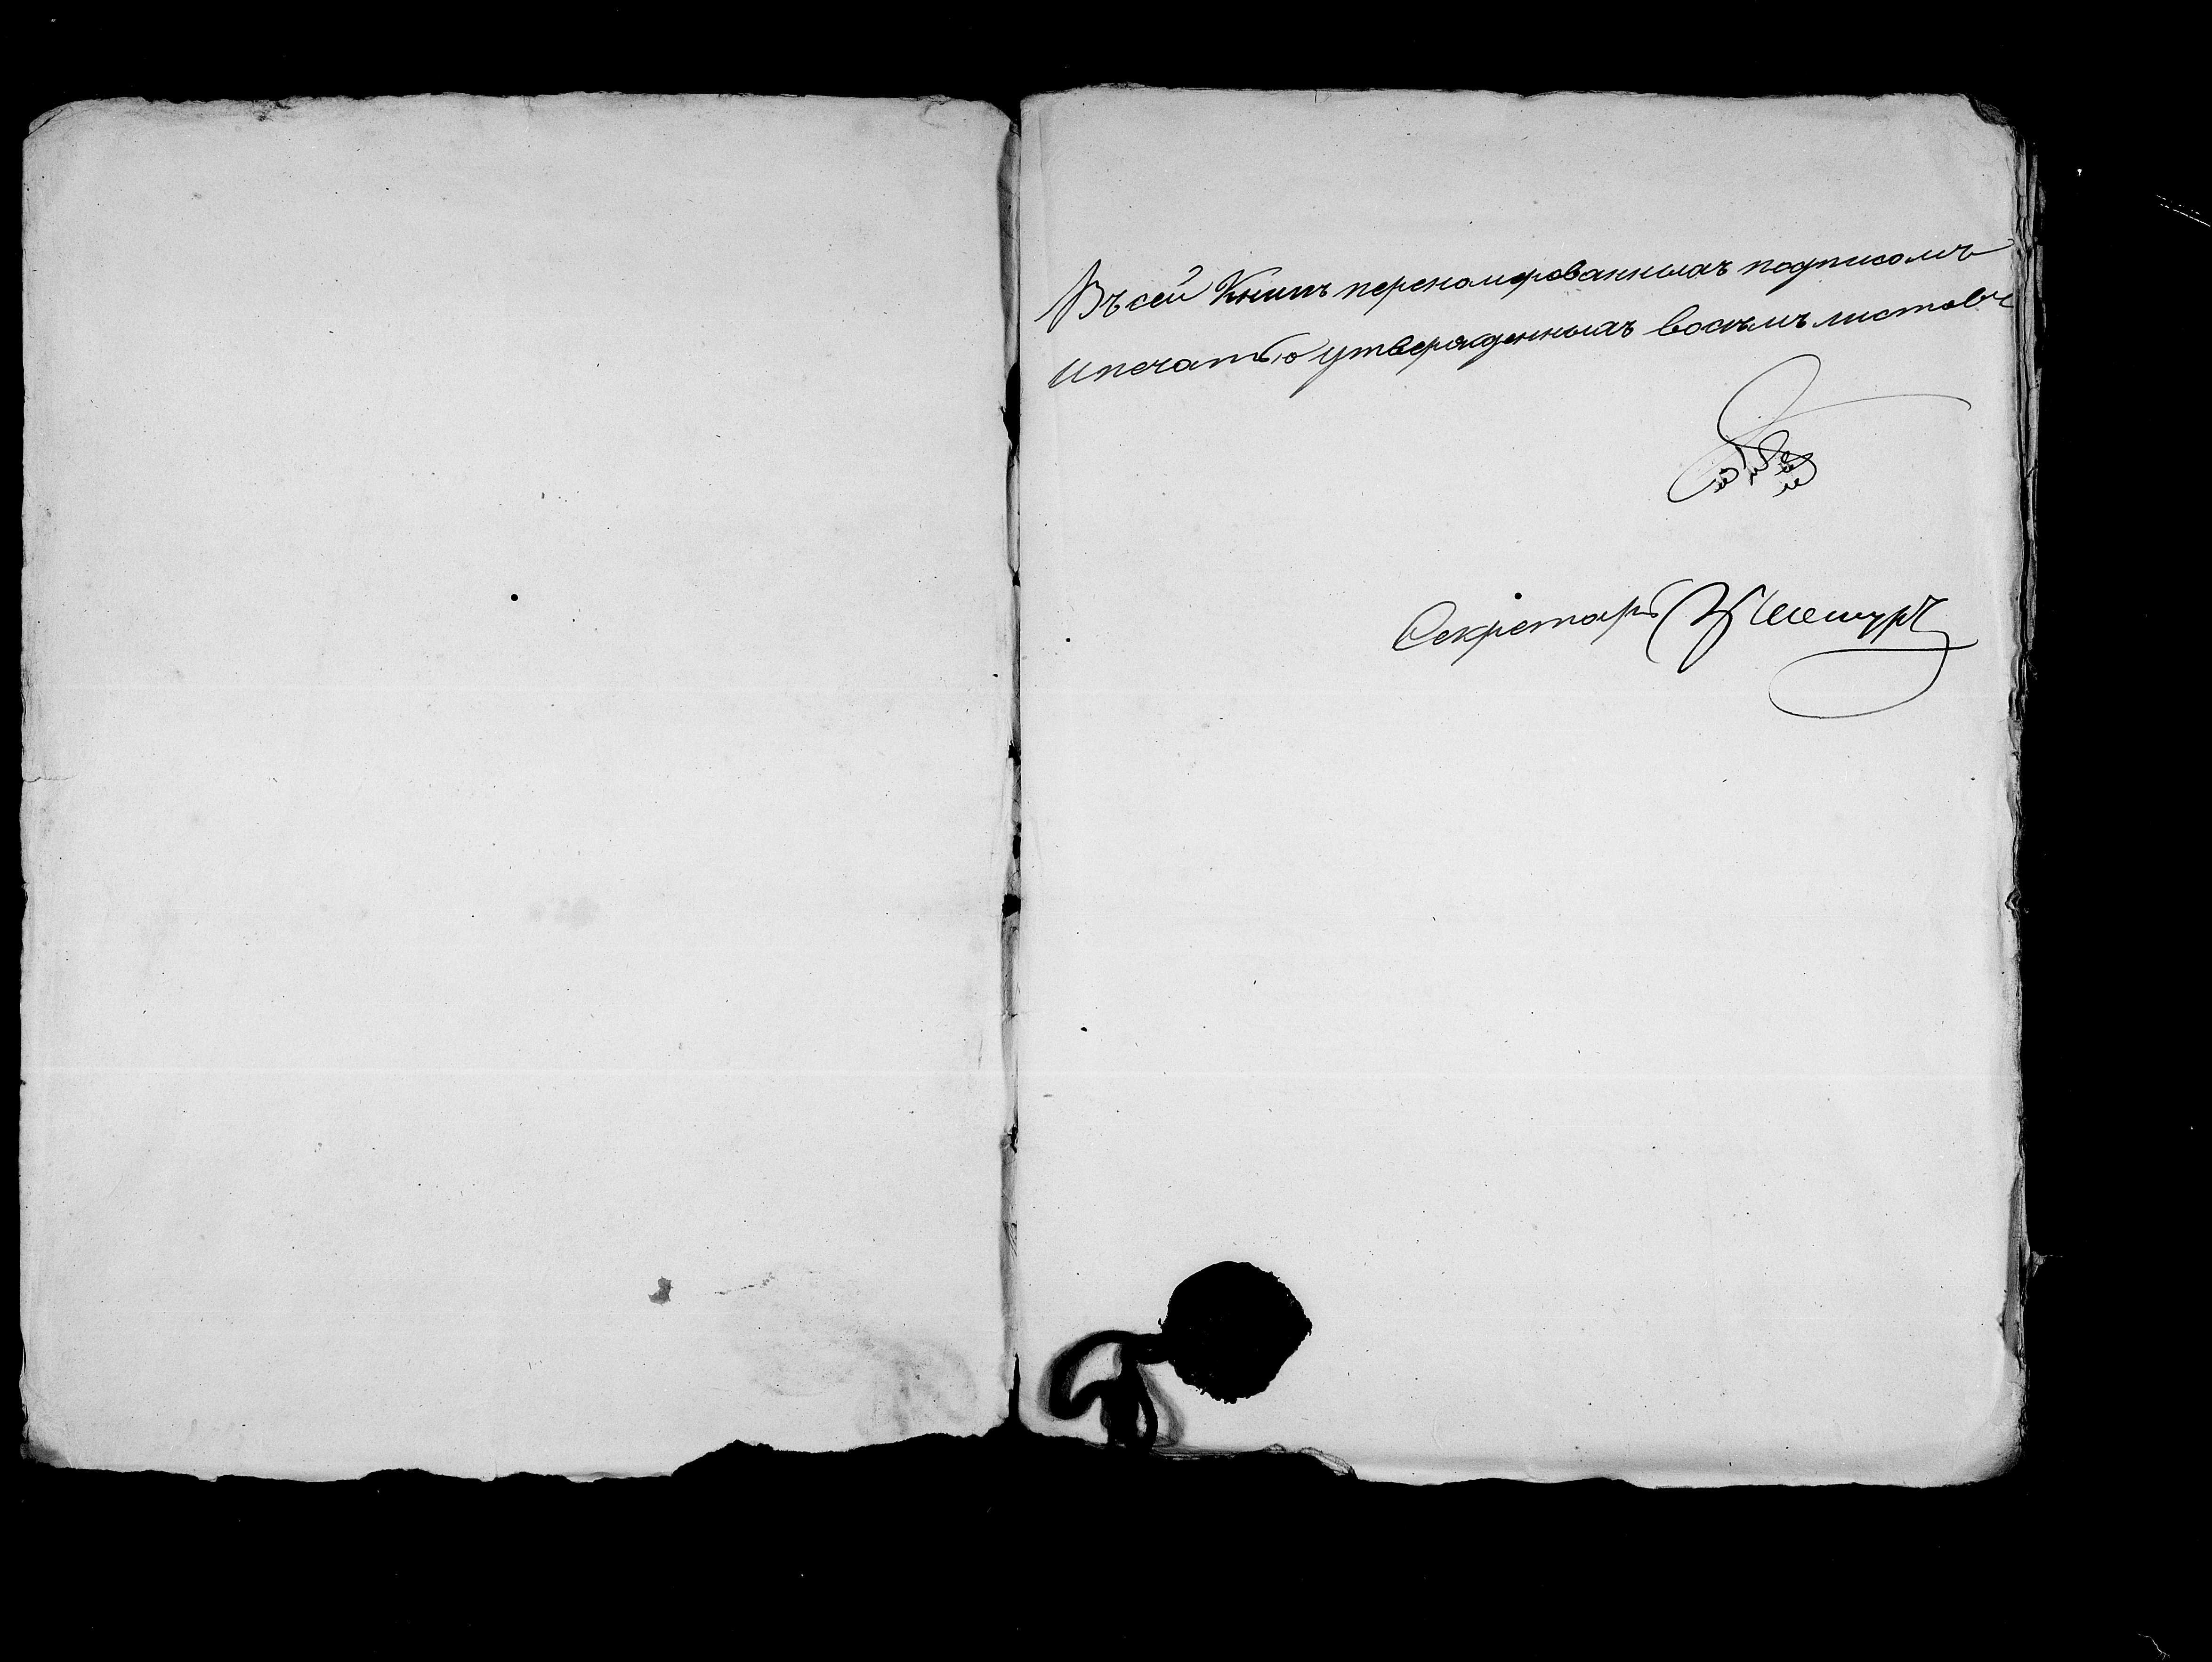 Въ сей Книгѣ перенамерованныхъ подписомъ
и печатью утвержденныхъ восѣмъ листовъ
Секретарь